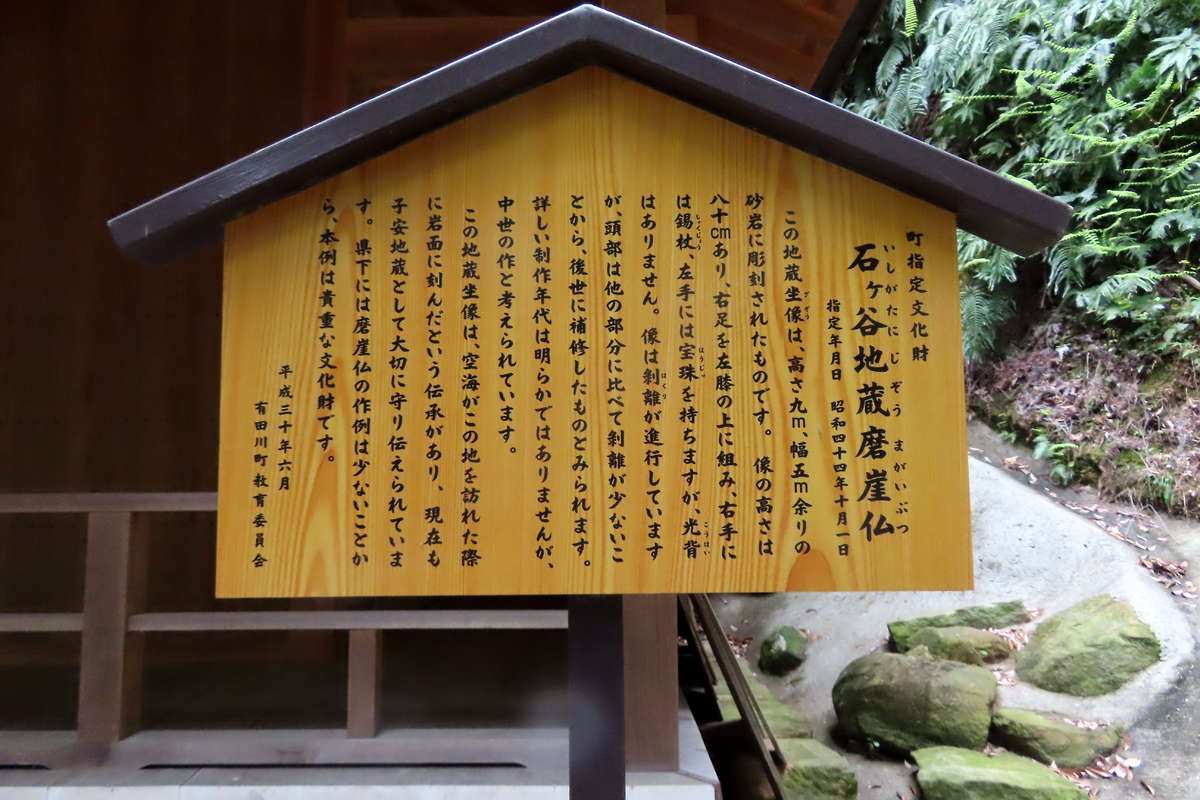 町指定文化財
いしがたにじぞうまがいぶつ
石ヶ谷地蔵磨崖仏
指定年月日 昭和四十四年十月一日
この地蔵坐像は、高さ九m、幅五m余りの
ざぞう
砂岩に彫刻されたものです。像の高さは
八十cmあり、右足を左膝の上に組み、右手に
は錫杖、左手には宝珠を持ちますが、光背
しゃくじょう
ほうじゅ
こうはい
はありません。像は剝離が進行しています
はくり
が、頭部は他の部分に比べて剝離が少ないこ
とから、後世に補修したものとみられます。
詳しい制作年代は明らかではありませんが、
中世の作と考えられています。
この地蔵坐像は、空海がこの地を訪れた際
に岩面に刻んだという伝承があり、現在も
子安地蔵として大切に守り伝えられていま
す。県下には磨崖仏の作例は少ないことか
ら、本例は貴重な文化財です。
平成三十年六月
有田川町教育委員会